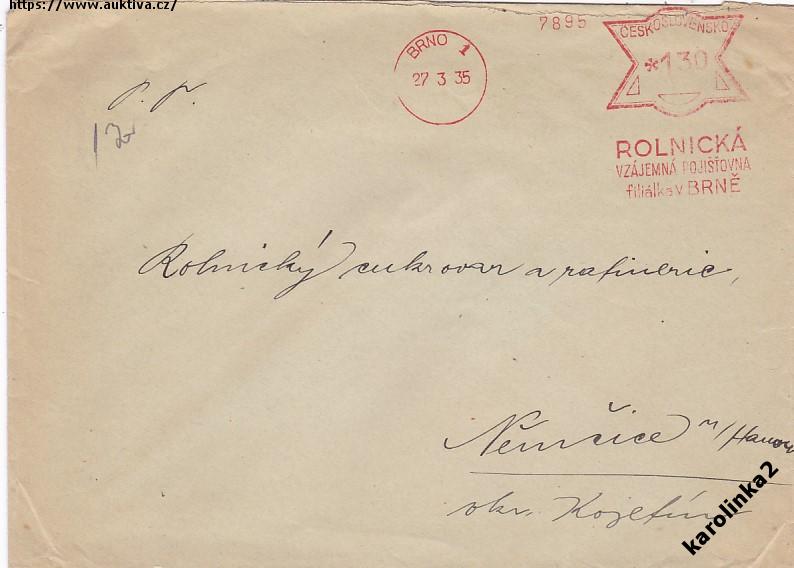 https://www.auktiva.cz/
7895
ČESKOSLOVENSKO
*130
BRNO 1
27 3 35
ROLNICKÁ
VZÁJEMNÁ POJIŠŤOVNA
filiálka v BRNĚ
P. T.
Rolnický cukrovar a rafinerie,
Němčice n/Hanou
okr. Kojetín
karolinka2